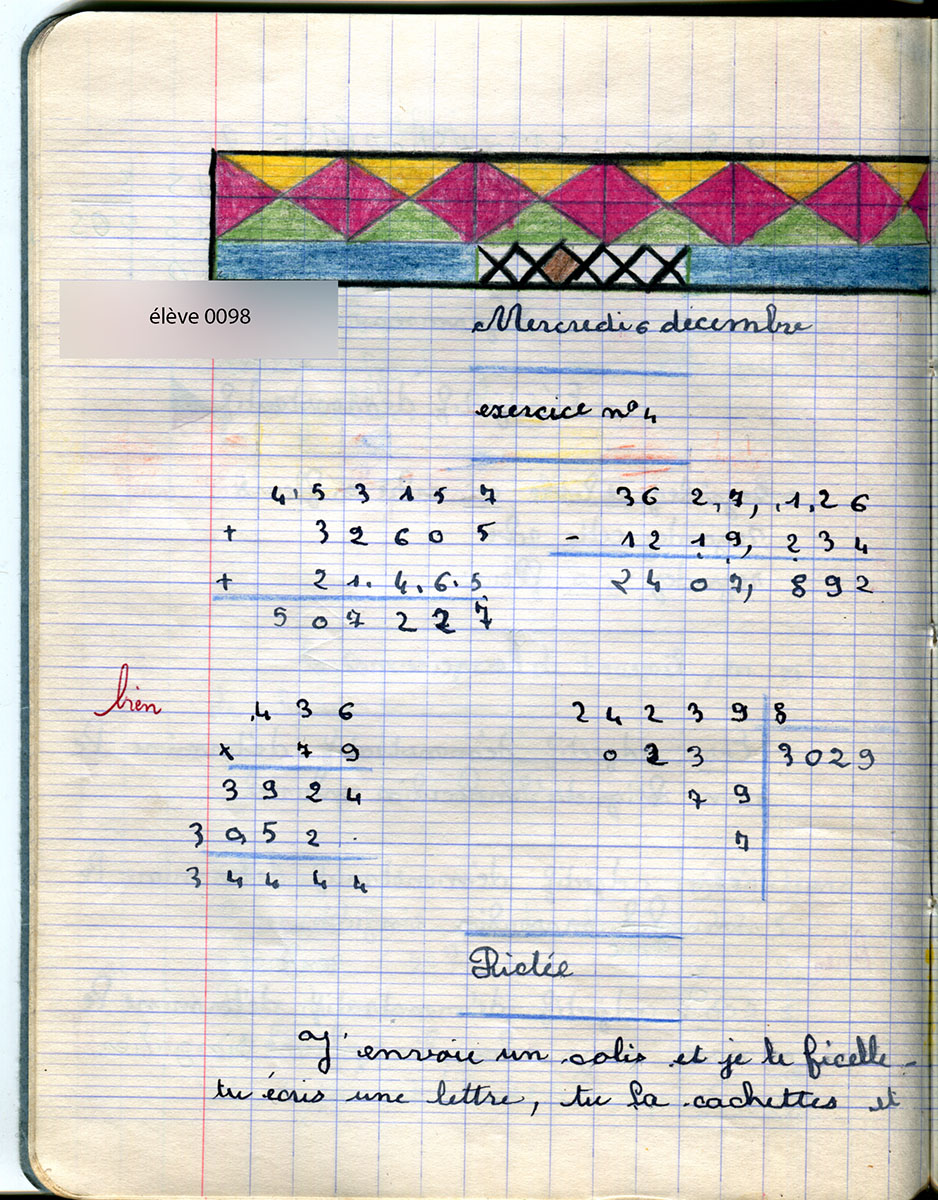 élève 0098
Mercredi 6 décembre
exercice n° 4
4 5 3 1 5 7
+ 3 2 6 0 5
+ 2 1 4 6 5
5 0 7 2 2 7
36 2 7, 1 2 6
- 12 1 9, 2 3 4
2 4 0 7, 8 9 2
bien
4 3 6
x 7 9
3 9 2 4
3 0 5 2 .
3 4 4 4 4
2 4 2 3 9 8
0 2 3 3029
7 9
7
Dictée
J'envoie un colis et je le ficelle -
tu écris une lettre, tu la cachettes et